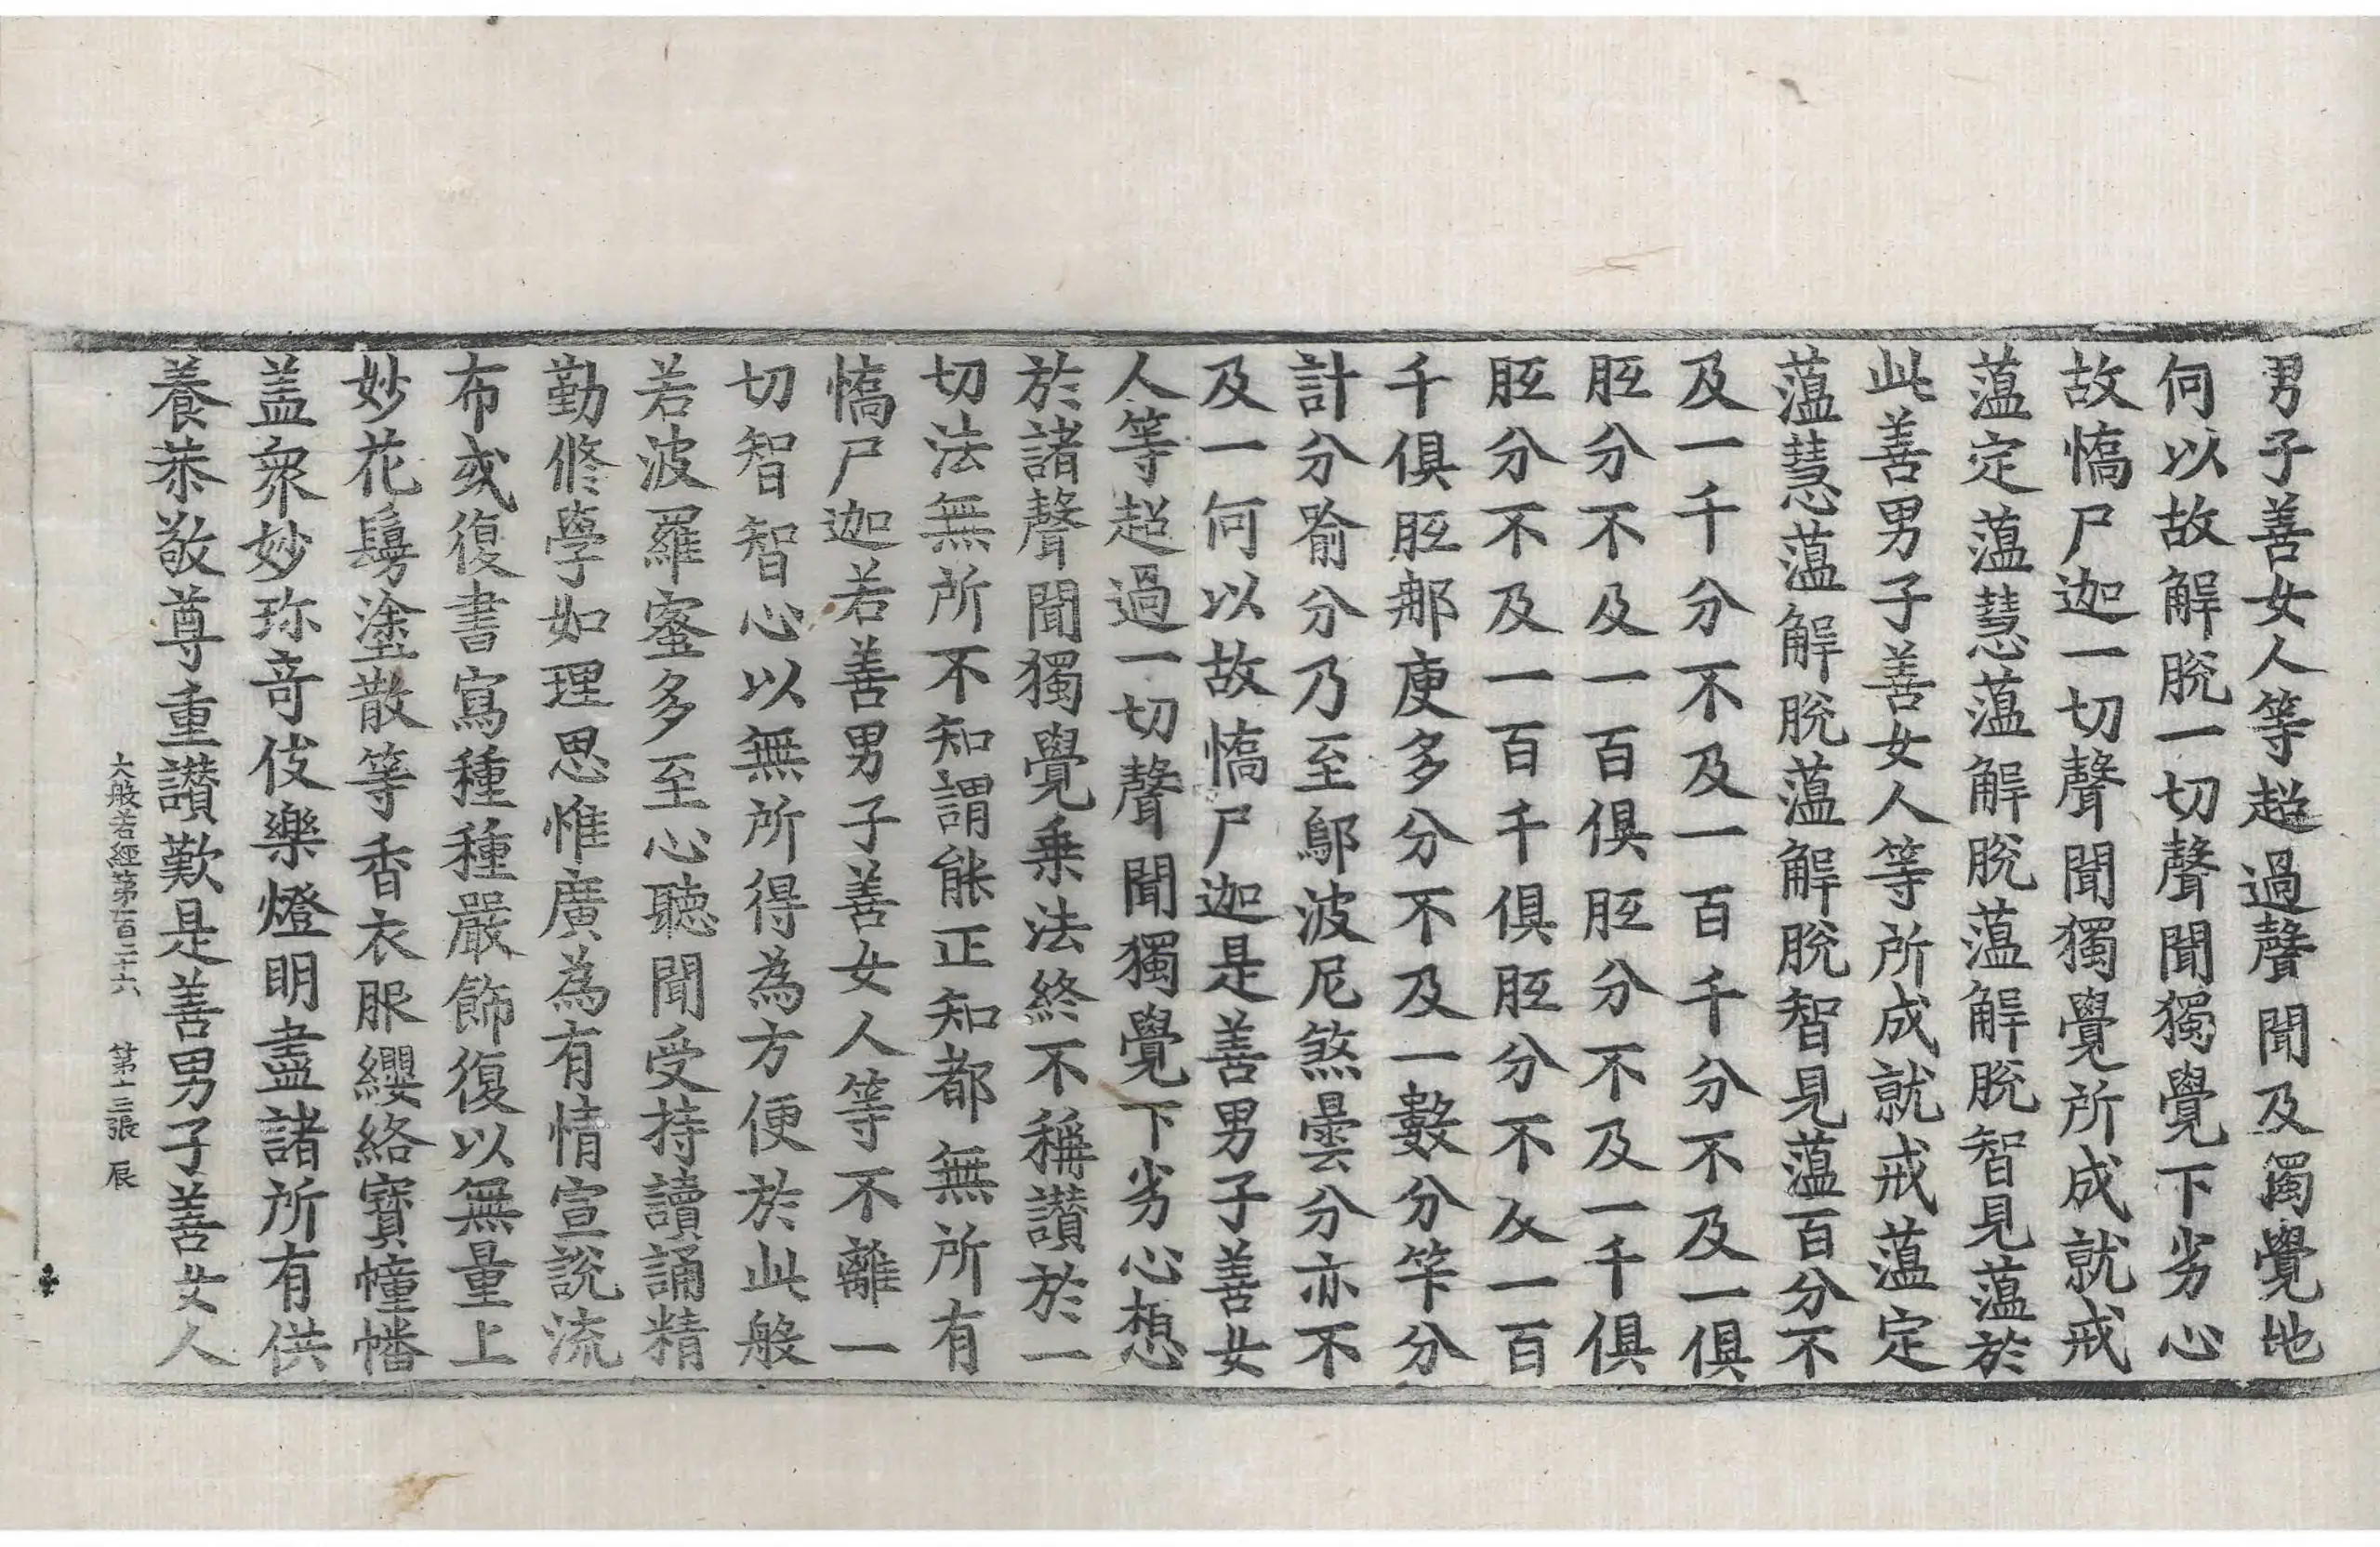 男子善女人等超過聲聞及獨覺地
何以故解脫一切聲聞獨覺下劣心
故憍尸迦一切聲聞獨覺所成就戒
蘊定蘊慧蘊解脫蘊解脫智見蘊於
此善男子善女人等所成就戒蘊定
蘊慧蘊解脫蘊解脫智見蘊百分不
及一千分不及一百千分不及一俱
胝分不及一百俱胝分不及一千俱
胝分不及一百千俱胝分不及一百
千俱胝那庾多分不及一數分筭分
計分喻分乃至鄔波尼煞曇分亦不
及一何以故憍尸迦是善男子善女
人等超過一切聲聞獨覺下劣心想
於諸聲聞獨覺乗法終不稱讃於一
切法無所不知謂能正知都無所有
憍尸迦若善男子善女人等不離一
切智智心以無所得為方便於此般
若波羅蜜多至心聽聞受持讀誦精
勤修學如理思惟廣為有情宣說流
布或復書寫種種嚴飾復以無量上
妙花鬘塗散等香衣服纓絡寶幢幡
盖衆妙珎奇伎樂燈明盡諸所有供
養恭敬尊重讃歎是善男子善女人
大般若經第一百二十六 第十三張 辰